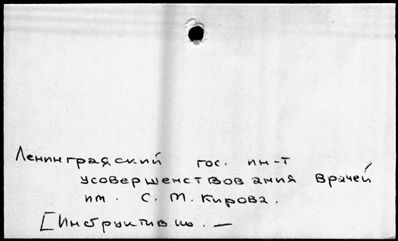 Ленинградский гос. ин-т
усовершенствования врачей
им. С. М. Кирова.
[Инструктивно. —